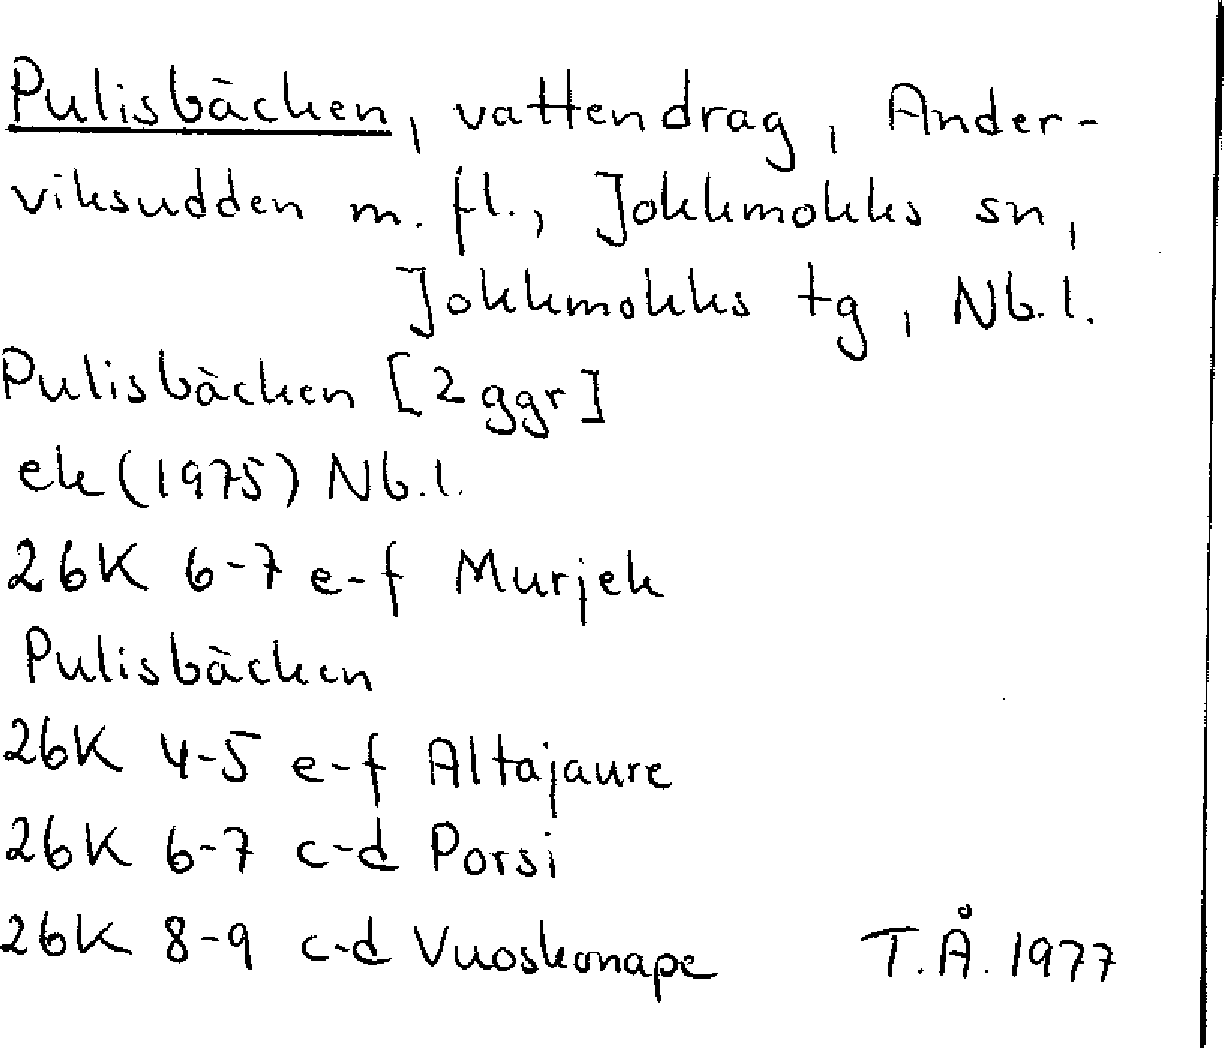 Pulisbäcken, vattendrag, Ander-
viksudden m. fl., Jokkmokks sn,
Jokkmokks tg, Nb. l.
Pulisbäcken [2 ggr]
ek (1975) Nb. l.
26K 6-7 e-f Murjek
Pulisbäcken
26K 4-5 e-f Altajaure
26K 6-7 c-d Porsi
26K 8-9 c-d Vuoskonape T.Å. 1977